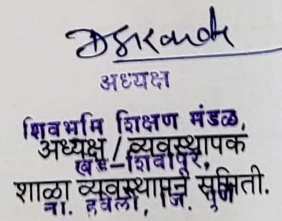 अध्यक्ष
शिवभूमि शिक्षण मंडळ,
अध्यक्ष / व्यवस्थापक
खेड-शिवापूर,
शाळा व्यवस्थापन समिती.
ता. हवेली, जि. पुणे